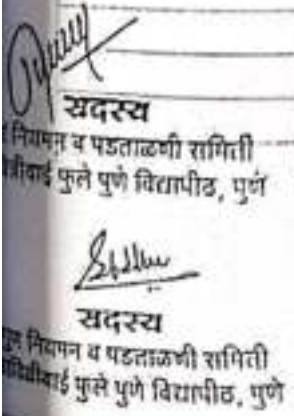 सदस्य
नियमन व पडताळणी समिती
फुले पुणे विद्यापीठ, पुणे
सदस्य
नियमन व पडताळणी समिती
फुले पुणे विद्यापीठ, पुणे